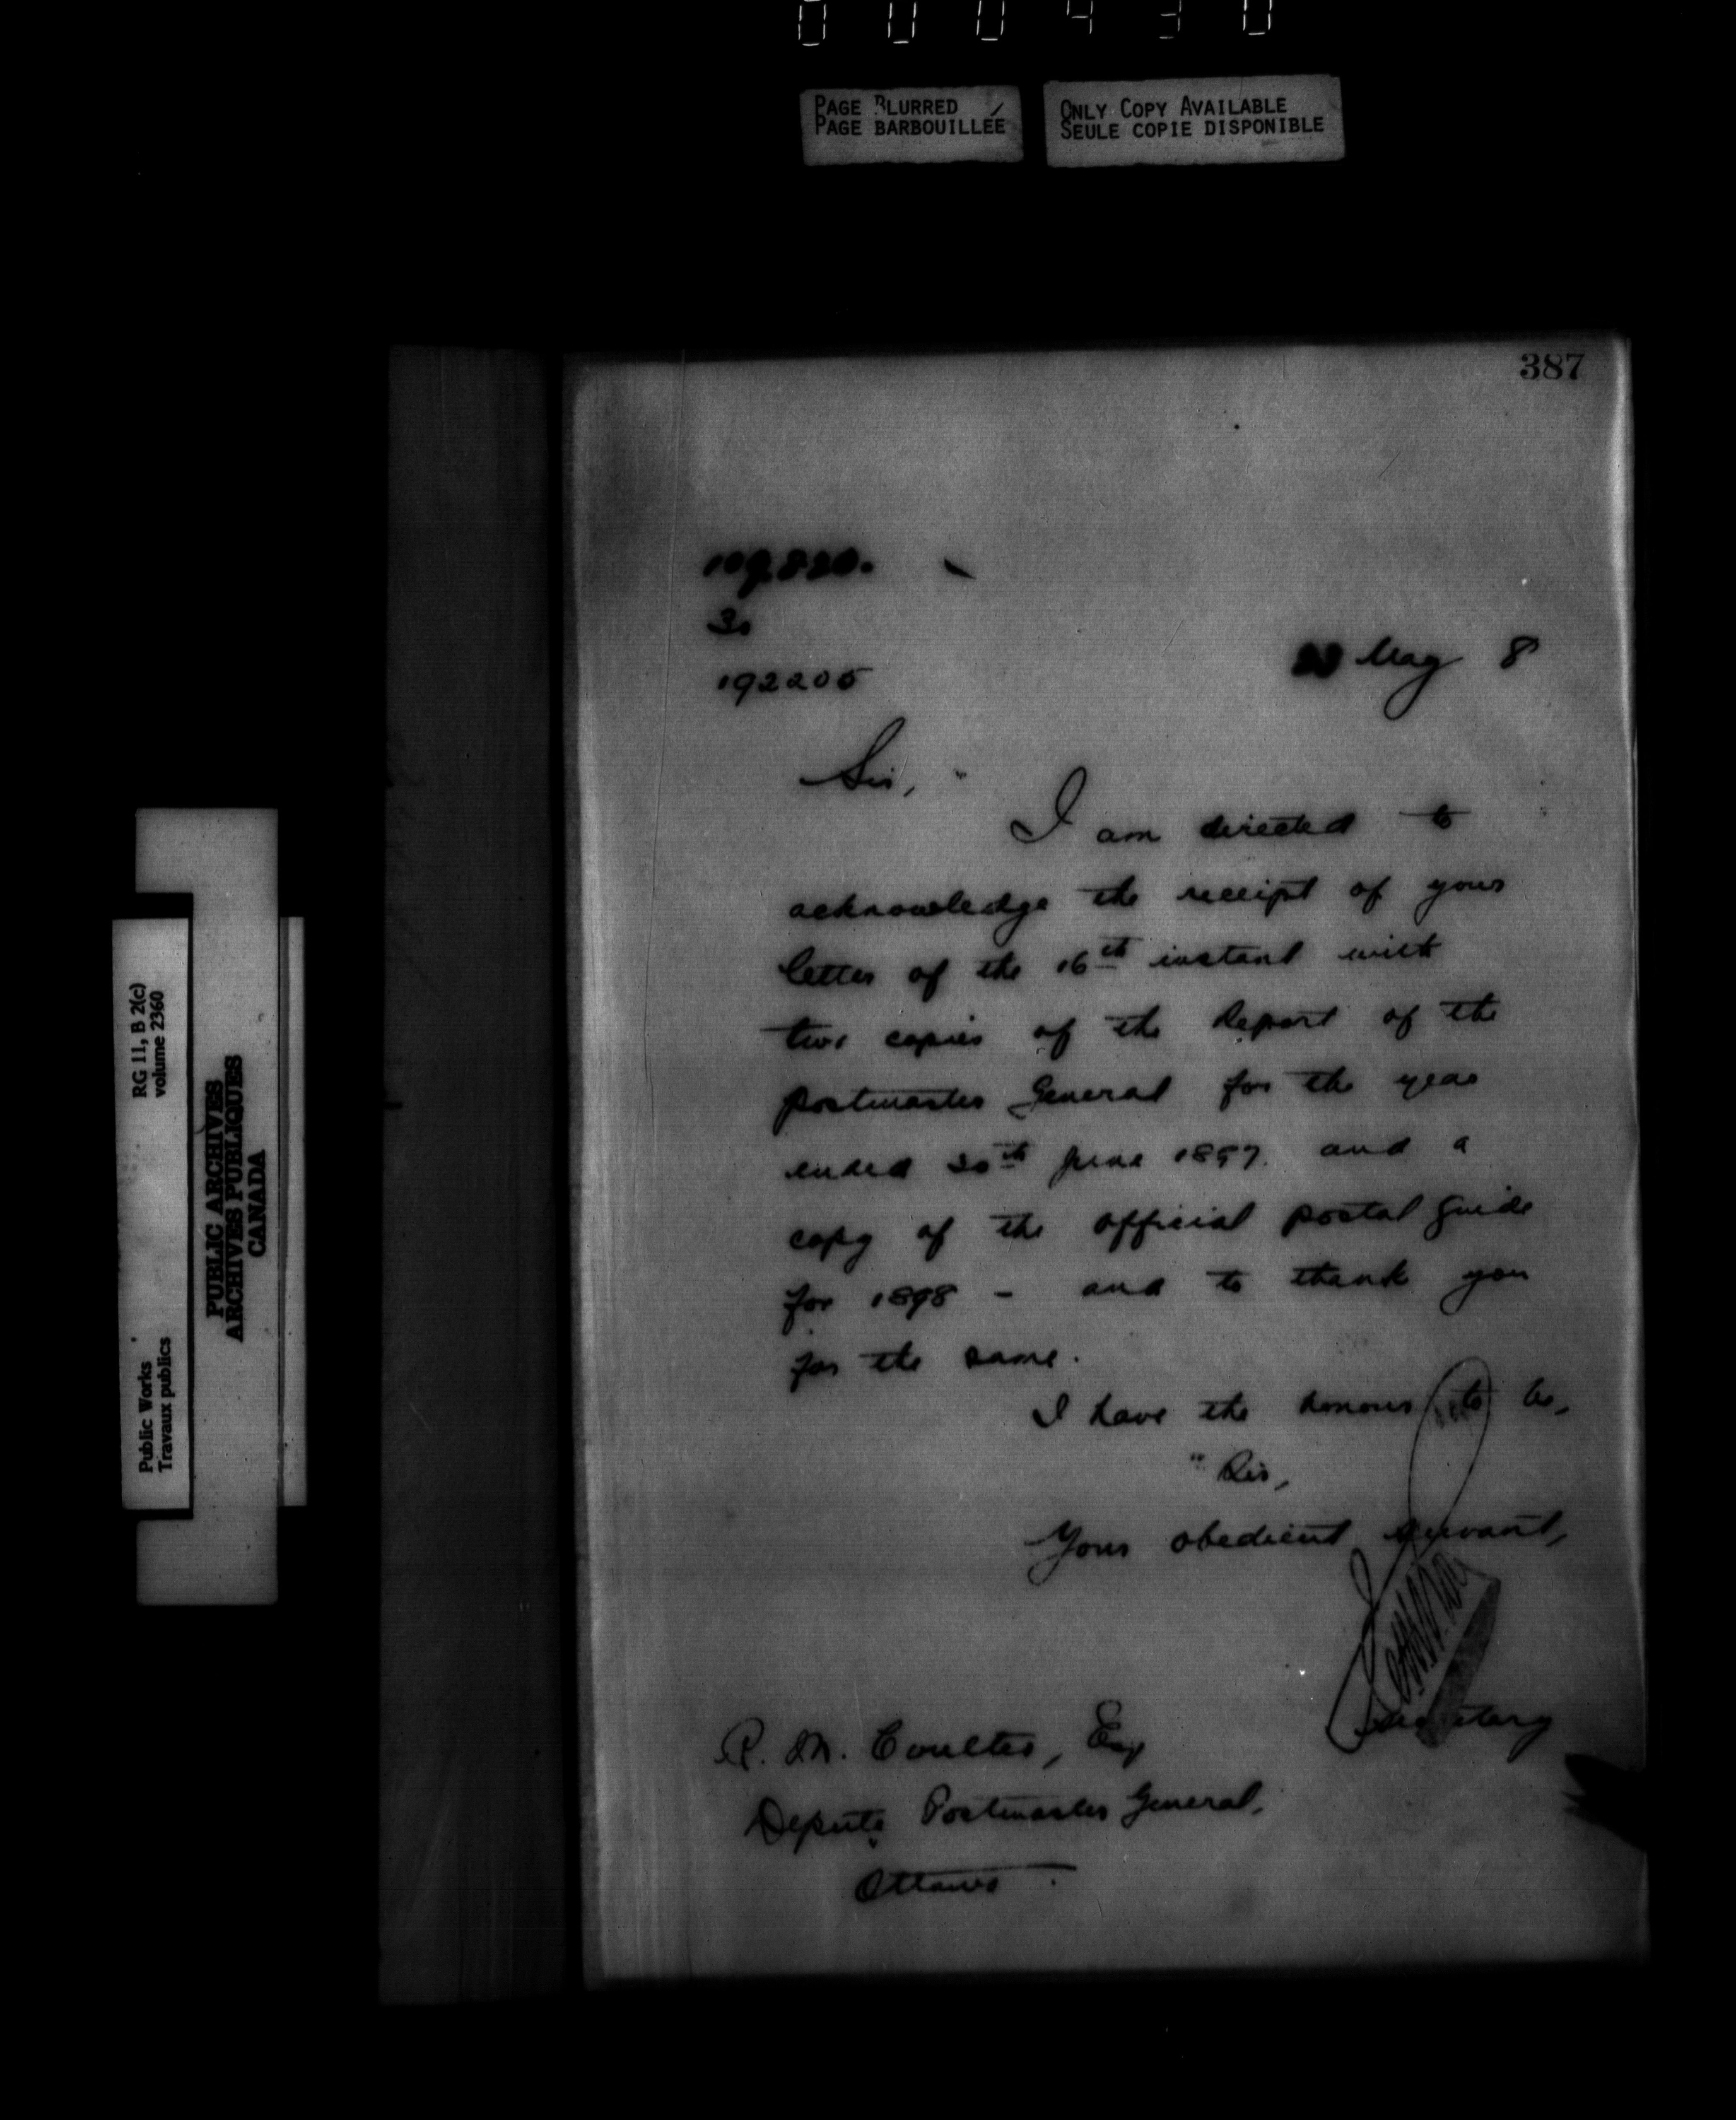 000430
PAGE BLURRED
PAGE BARBOUILLÉE
ONLY COPY AVAILABLE
SEULE COPIE DISPONIBLE
387
3.
192205
May 8
Sir,
I am directed to
acknowledge the receipt of your
letter of the 16th instant with
two copies of the Report of the
Postmaster General for the year
ended 30th June 1897. and a
copy of the official postal guide
for 1898 - and to thank you
for the same.
I have the honour to be,
Sir,
Your obedient servant,
Secretary
R. M. Coulter, Esq
Deputy Postmaster General,
Ottawa.
RG 11, B 2(c)
volume 2360
PUBLIC ARCHIVES
ARCHIVES PUBLIQUES
CANADA
Public Works
Travaux publics